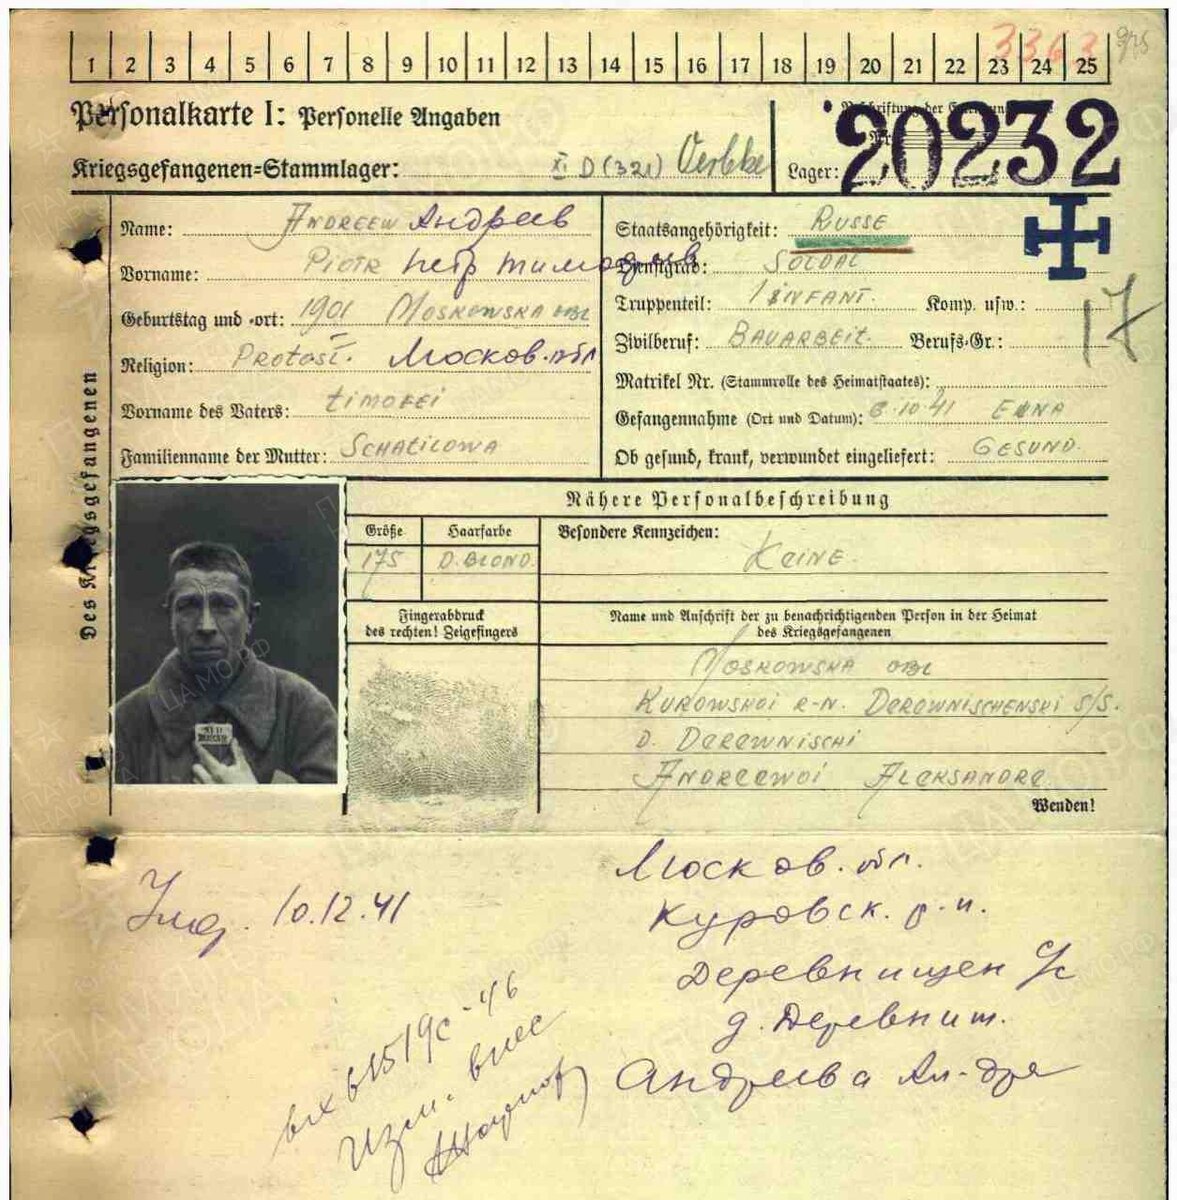 3363
1 2 3 4 5 6 7 8 9 10 11 12 13 14 15 16 17 18 19 20 21 22 23 24 25
Personalkarte I: Personelle Angaben
Kriegsgefangenen=Stammlager: XI D (321) Oerbke
Lager: 20232
Des Kriegsgefangenen
Name: Andreew Андреев
Vorname: Piotr Петр Тимофеев
Geburtstag und -ort: 1901 Moskowska obl
Religion: Protost. Москов. обл
Vorname des Vaters: timofei
Familienname der Mutter: Schatilowa
Staatsangehörigkeit: Russe
Dienstgrad: Soldat
Truppenteil: Infant. Komp. usw.:
17
Zivilberuf: Bauarbeit. Berufs-Gr.:
Matrikel Nr. (Stammrolle des Heimatstaates):
Gefangennahme (Ort und Datum): 8.10.41
Ob gesund, krank, verwundet eingeliefert: Gesund.
Nähere Personalbeschreibung
Größe Haarfarbe Besondere Kennzeichen:
175 D. Blond Keine.
Fingerabdruck
des rechten! Zeigefingers
Name und Anschrift der zu benachrichtigenden Person in der Heimat
des Kriegsgefangenen
Moskowska obl
Kurowskoi r-n. Derewnischenski s/s.
D. Derewnischi
Andreewoi Aleksandre
Wenden!
10.12.41
Москов. обл.
Куровск. р-н.
Деревнищен с/с
д. Деревнищ.
Андреева Ал-дре
вх 61519с-46
Изм. внес